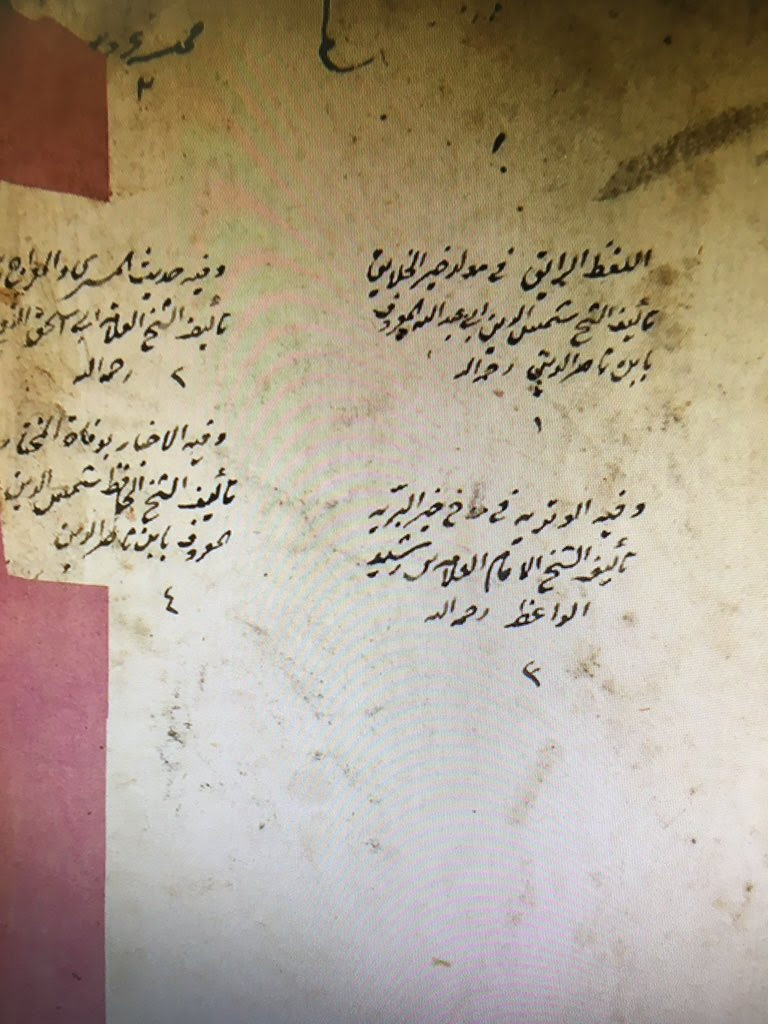 محمد
٢
اللفظ الرايق في مولد خير الخلايق
تأليف الشيخ شمس الدين ابي عبد الله المعروف
بابن ناصر الدين رحمه الله
١
وفيه حديث المسرى والمعراج
تأليف الشيخ العلامة ابي اسحق
رحمه الله ٢
وفيه الوتريه في مدح خير البريه
تأليف الشيخ الامام العلامه بن رشيد
الواعظ رحمه الله
٣
وفيه الاخبار بوفاة المختار
تأليف الشيخ الحافظ شمس الدين
المعروف بابن ناصر الدين
٤